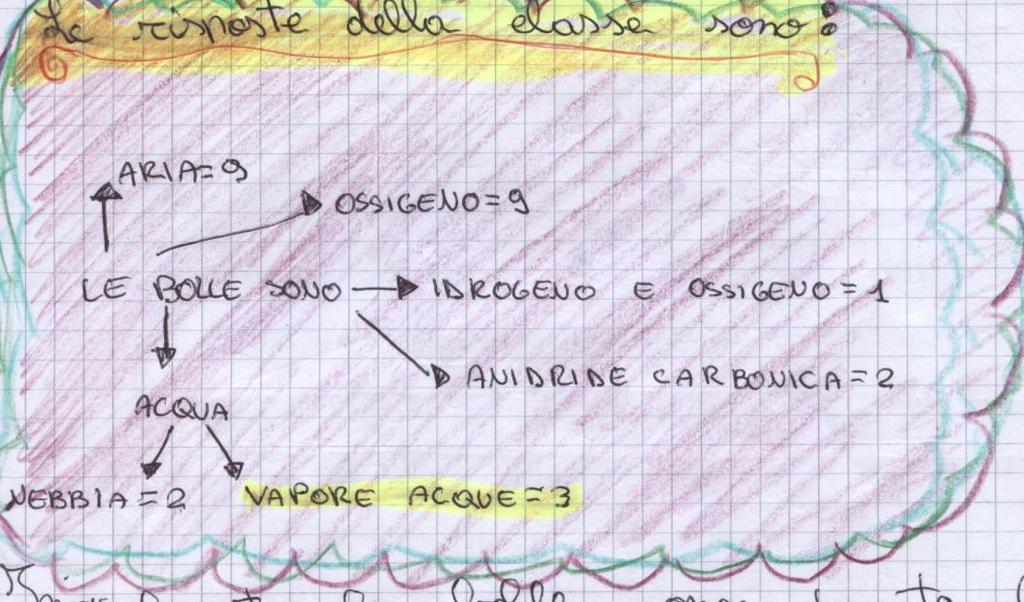 Le risposte della classe sono:
ARIA=9
OSSIGENO=9
LE BOLLE SONO IDROGENO E OSSIGENO=1
ANIDRIDE CARBONICA=2
ACQUA
NEBBIA=2 VAPORE ACQUE=3